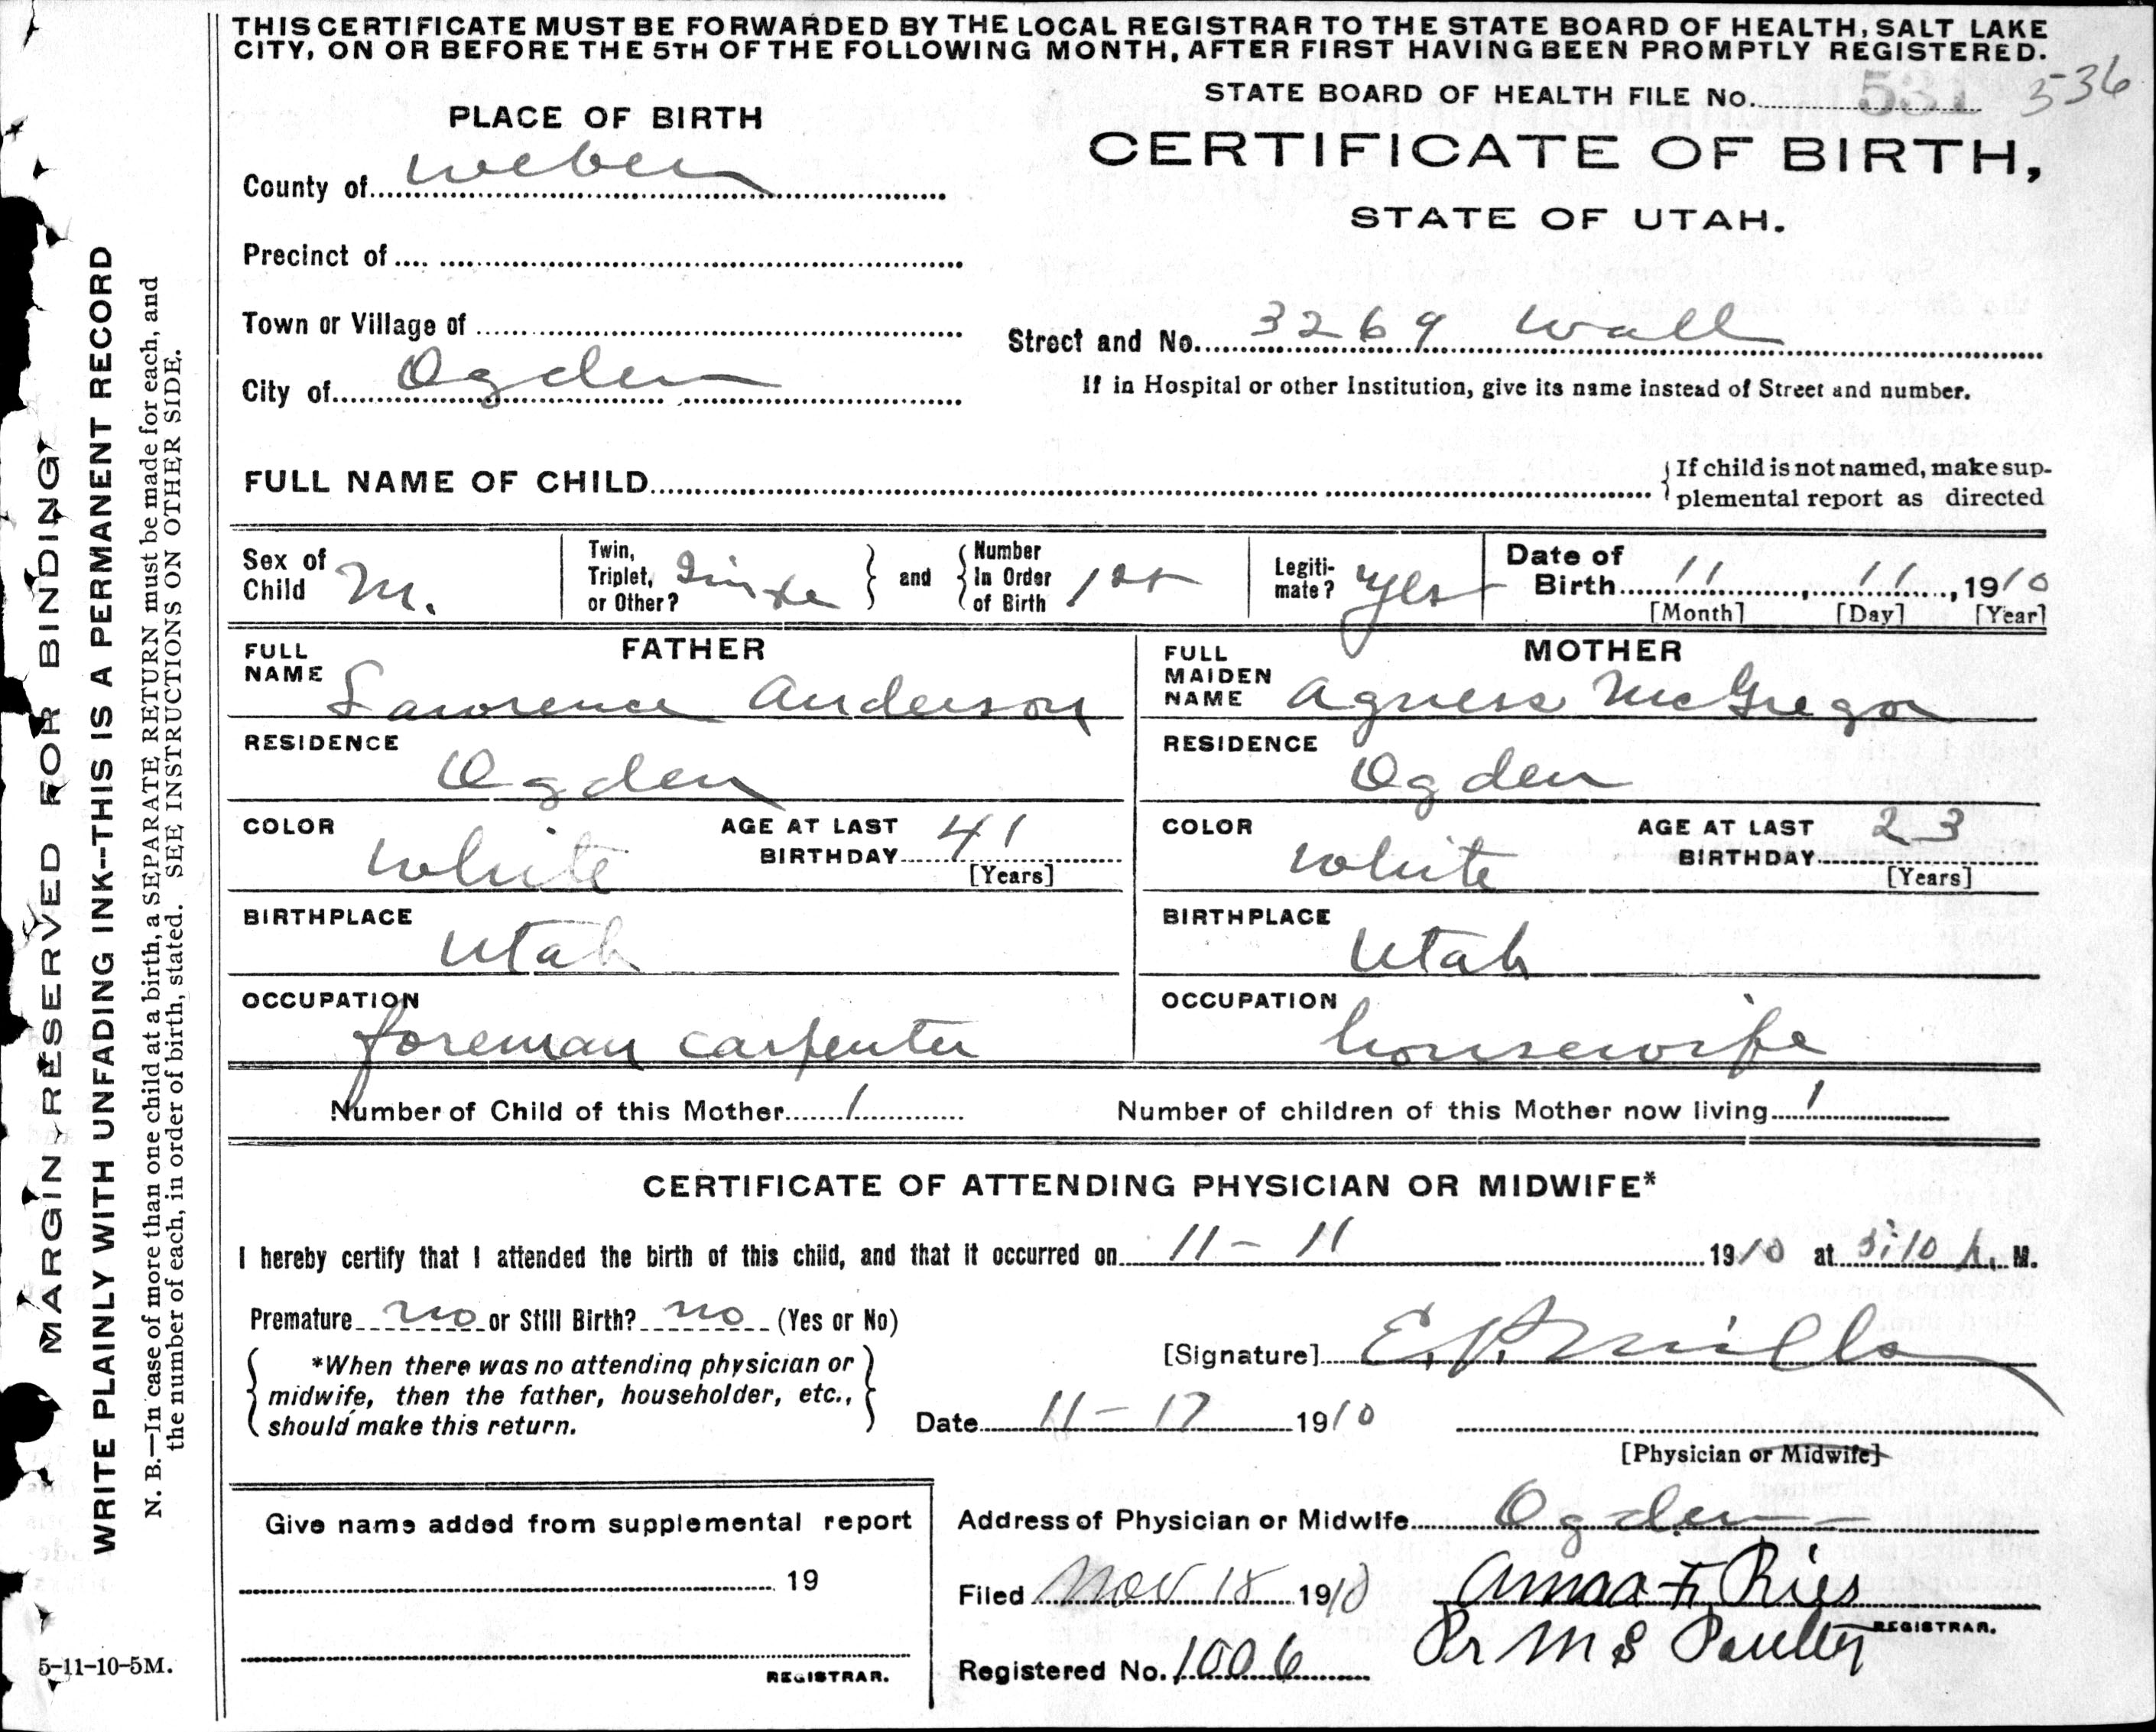 THIS CERTIFICATE MUST BE FORWARDED BY THE LOCAL REGISTRAR TO THE STATE BOARD OF HEALTH, SALT LAKE
CITY, ON OR BEFORE THE 5TH OF THE FOLLOWING MONTH, AFTER FIRST HAVING BEEN PROMPTLY REGISTERED.
STATE BOARD OF HEALTH FILE No. 531 536
PLACE OF BIRTH
CERTIFICATE OF BIRTH,
STATE OF UTAH.
County of Weber
Precinct of
Town or Village of
Street and No. 3269 Wall
City of Ogden
If in Hospital or other Institution, give its name instead of Street and number.
FULL NAME OF CHILD
{If child is not named, make sup-
plemental report as directed
Sex of Child M.
Twin, Triplet, or Other?
and
Number In Order of Birth 1st
Legiti-mate? Yes
Date of Birth 11, 11, 1910
[Month] [Day] [Year]
FATHER
FULL NAME Lawrence Anderson
RESIDENCE
Ogden
COLOR White AGE AT LAST BIRTHDAY 41
[Years]
BIRTHPLACE
Utah
OCCUPATION
foreman carpenter
MOTHER
FULL MAIDEN NAME Agness McGregor
RESIDENCE
Ogden
COLOR White AGE AT LAST BIRTHDAY 23
[Years]
BIRTHPLACE
Utah
OCCUPATION
housewife
Number of Child of this Mother 1 Number of children of this Mother now living 1
CERTIFICATE OF ATTENDING PHYSICIAN OR MIDWIFE*
I hereby certify that I attended the birth of this child, and that it occurred on 11 - 11 1910 at 3:10 P. M.
Premature no or Still Birth? no (Yes or No)
*When there was no attending physician or
midwife, then the father, householder, etc.,
should make this return.
[Signature] E. P. Mills
Date 11 - 17 1910
[Physician or Midwife]
Give name added from supplemental report
19
REGISTRAR.
Address of Physician or Midwife Ogden
Filed Nov 18 1910 Amaa F. Ries
REGISTRAR.
Registered No. 1006 Pr M S
5-11-10-5M.
MARGIN RESERVED FOR BINDING
WRITE PLAINLY WITH UNFADING INK--THIS IS A PERMANENT RECORD
N. B.—In case of more than one child at a birth, a SEPARATE RETURN must be made for each, and
the number of each, in order of birth, stated. SEE INSTRUCTIONS ON OTHER SIDE.